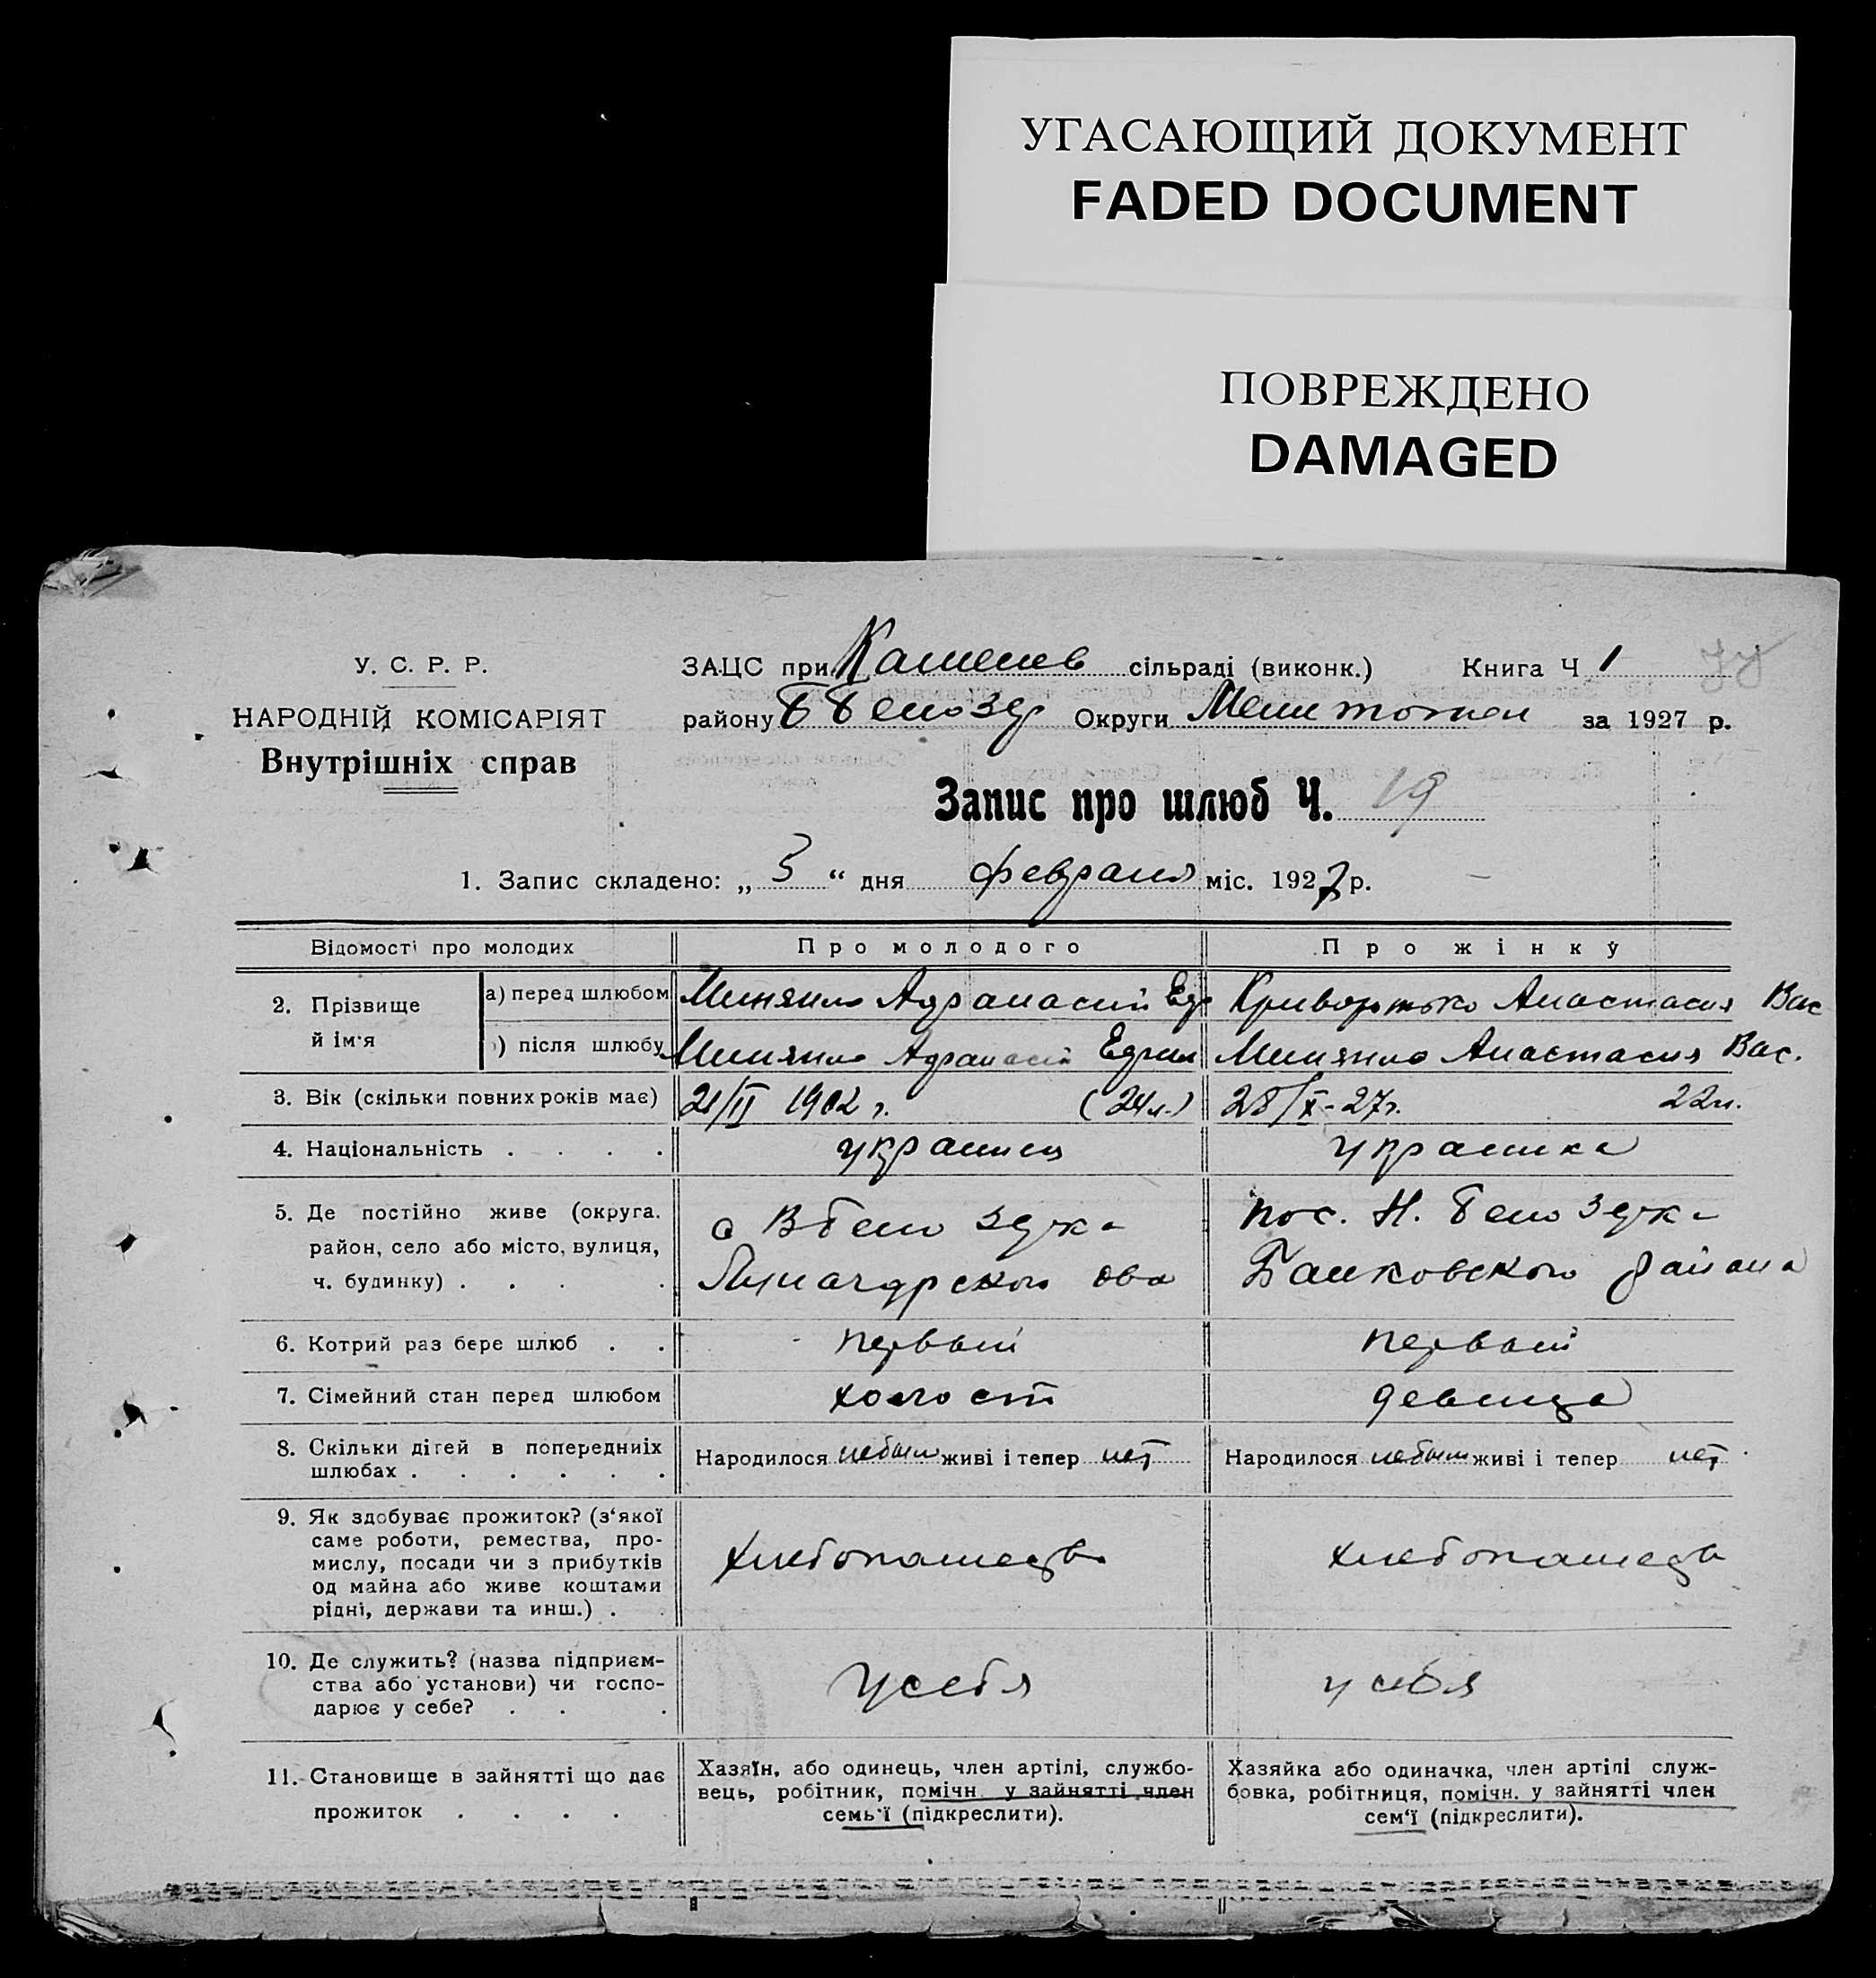 УГАСАЮЩИЙ ДОКУМЕНТ
FADED DOCUMENT
ПОВРЕЖДЕНО
DAMAGED
У. С. Р. Р.
НАРОДНІЙ КОМІСАРІЯТ
Внутрішніх справ
ЗАЦС при Каменев сільраді (виконк.) Книга Ч 1
району Округи Мелитопол за 1927 р.
Запис про шлюб Ч. 19
1. Запис складено: „ 3 “ дня февраля міс. 1927 р.
Відомості про молодих Про молодого Про жінку
2. Прізвище й ім'я
а) перед шлюбом Миняило Афанасий Кривортько Анастасия Вас
) після шлюбу Миняило Афанасій Миняило Анастасия Вас.
3. Вік (скільки повних років має) 21/II 1902 г. (24 л.) 28/X-27г. 22л.
4. Національність . . . . украинец украинка
5. Де постійно живе (округа, район, село або місто, вулиця, ч. будинку) . . . .
с В белозерка
пос. Н. белозерка
Банковского района
6. Котрий раз бере шлюб . . первый первый
7. Сімейний стан перед шлюбом холост девица
8. Скільки дітей в попередніх шлюбах . . . . . .
Народилося небыли живі і тепер нет Народилося небыли живі і тепер нет
9. Як здобуває прожиток? (з'якої
саме роботи, ремества, про-
мислу, посади чи з прибутків
од майна або живе коштами
рідні, держави та инш.) .
хлебопашество хлебопашество
10. Де служить? (назва підприєм-
ства або установи) чи госпо-
дарює у себе? . . .
у себя у себя
11. Становище в зайнятті що дає
прожиток . . . .
Хазяїн, або одинець, член артілі, службо-
вець, робітник, помічн. у зайнятті член
семь'ї (підкреслити).
Хазяйка або одиначка, член артілі служ-
бовка, робітниця, помічн. у зайнятті член
сем'ї (підкреслити).